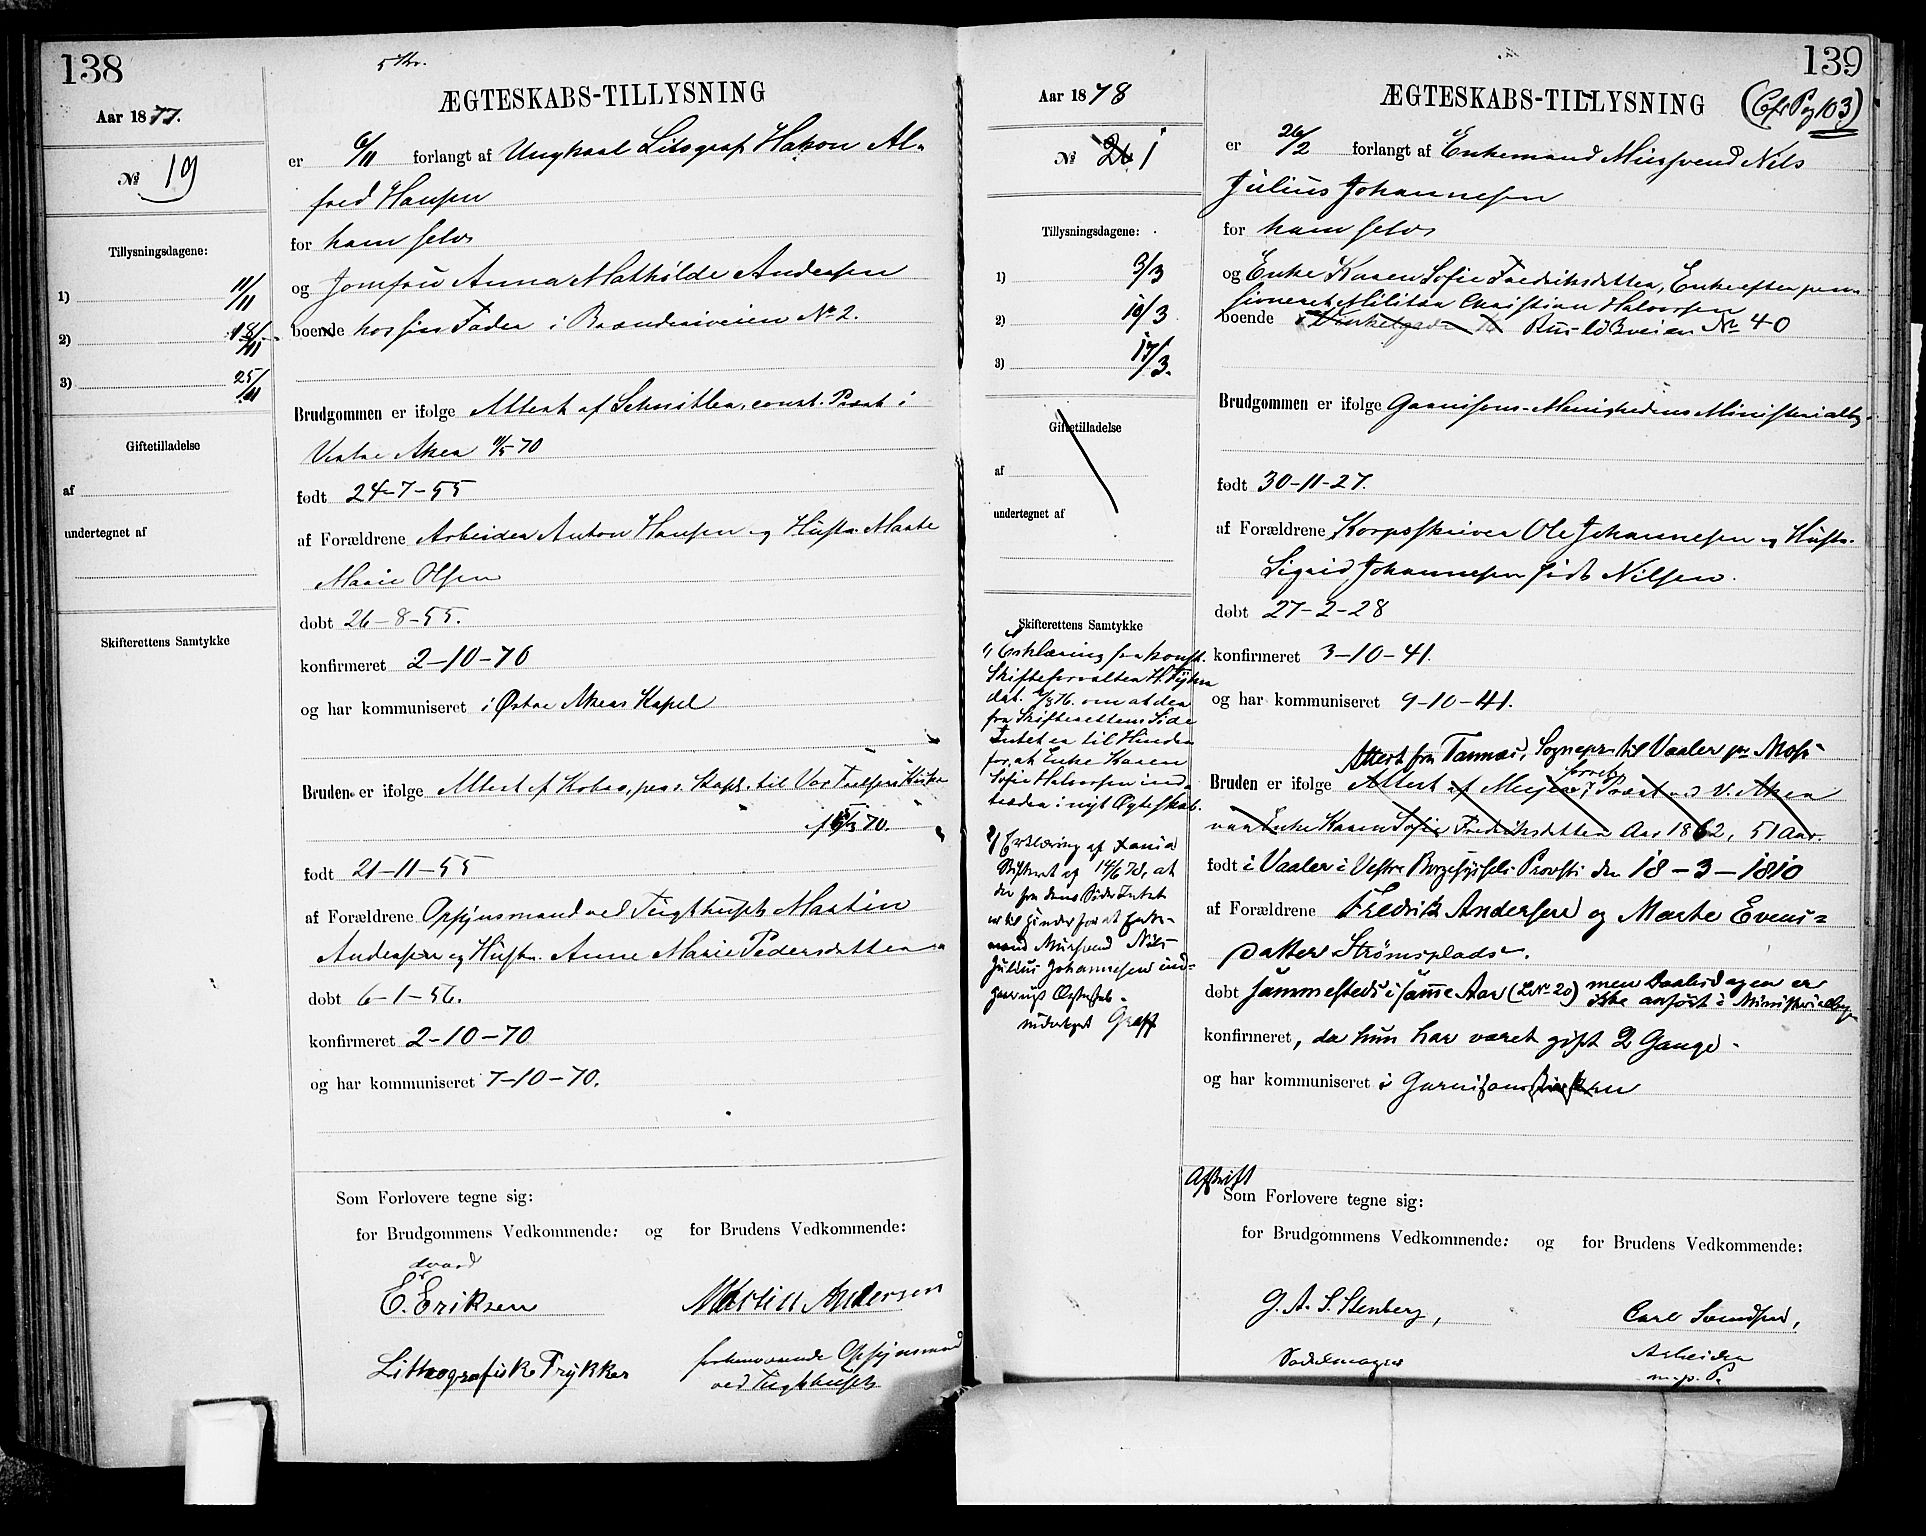 138
5 Kr.
Aar 1877.
№ 19
Tillysningsdagene:
1) 11/11
2) 18/11
3) 25/11
Giftetilladelse
af
undertegnet af
Skifterettens Samtykke
ÆGTESKABS-TILLYSNING
er 6/11 forlangt af Ungkarl Litograf Hakon Al-
fred Hansen
for ham selv
og Jomfru Anna Mathilde Andersen
boende hos sin Fader i Brænderiveien № 2.
Brudgommen er ifølge Attest af Schnitler, const. Præst i
Vestre Aker 11/5 70
født 24-7-55
af Forældrene Arbeider Anton Hansen og Hustr. Marte
Marie Olsen
døbt 26-8-55.
konfirmeret 2-10-70
og har kommuniseret i Østre Akers Kapel
Bruden er ifølge Attest af pers. Kapl. til Vor Frelsers Kirke
70.
født 21-11-55
af Forældrene Opsynsmand ved Tugthuset Martin
Andersen og Hustr. Anne Marie Pedersdatter
døbt 6-1-56.
konfirmeret 2-10-70
og har kommuniseret 7-10-70.
Som Forlovere tegne sig:
for Brudgommens Vedkommende: og for Brudens Vedkommende:
dvard
E. Eriksen Martin Andersen
Lithografiske Trykker forhenværende Opsynsmand
ved Tugthuset
139
Aar 1878
№ 20 1
Tillysningsdagene:
1) 3/3
2) 10/3
3) 17/3.
Giftetilladelse
af
undertegnet af
Skifterettens Samtykke
1) Erklæring fra konst.
Skifteforvalter
dat. 76. om at der
fra Skifterettens Side
Intet er til Hinder
for, at Enke Karen
Sofie Halvorsen ind-
træder i nyt Ægteskab.
2) Erklæring af
Skifteret af 14/6 70, at
der fra dens Side Intet
er til Hinder for at Enke-
mand Mursvend Nils
Julius Johannesen ind-
gaar nyt Ægteskab.
undertegnet Graff
ÆGTESKABS-TILLYSNING (Cfr Pg 103)
er 26/2 forlangt af Enkemand Mursvend Nils
Julius Johannesen
for ham selv
og Enke Karen Sofie Fredriksdatter, Enke efter pen-
sioneret Militær Christian Halvorsen
boende i Vinkelgaden Ruseløkveien № 40
Brudgommen er ifølge Garnisons-Menighedens Ministerialbg.
født 30-11-27.
af Forældrene Korpsskriver Ole Johannesen og Hustr.
Sigrid Johannesen født Nilsen.
døbt 27-2-28
konfirmeret 3-10-41.
og har kommuniseret 9-10-41.
Attest fra Tannæs, Sognepr. til Vaaler pr. Moss
Bruden er ifølge Attest af Meyer, Præst ved V. Aker
var Enke Karen Sofie Fredriksdatter Aar 1862, 51 Aar.
født i Vaaler i Vestre Borgesyssels Provsti den 18-3-1810
af Forældrene Fredrik Andersen og Marte Evens-
datter Strømsplads.
døbt sammesteds i samme Aar (L.№ 20) men Daabsdagen er
ikke anført i Ministerialbogen
konfirmeret, da hun har været gift 2 Gange.
og har kommuniseret i Garnisonskirken
Afskrift
Som Forlovere tegne sig:
for Brudgommens Vedkommende: og for Brudens Vedkommende:
G. A. S. Stenberg, Carl Svendsen,
Sadelmager Arbeider
m. p. P.